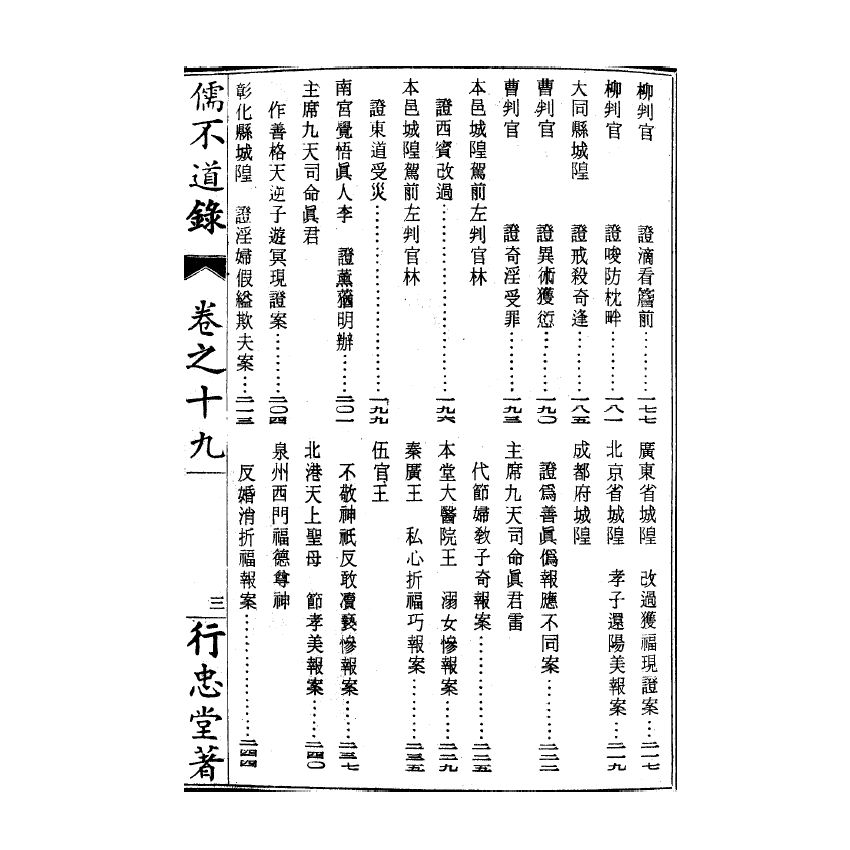 柳判官 證滴看簷前…………一七七
柳判官 證唆防枕畔…………一八一
大同縣城隍 證戒殺奇逢…………一八五
曹判官 證異術獲愆…………一九〇
曹判官 證奇淫受罪…………一九三
本邑城隍駕前左判官林
證西賓改過…………一九六
本邑城隍駕前左判官林
證東道受災…………一九九
南宮覺悟眞人李 證薰蕕明辦…………二〇一
主席九天司命眞君
作善格天逆子遊冥現證案…………二〇四
彰化縣城隍 證淫婦假縊欺夫案…二一三
廣東省城隍 改過獲福現證案…二一七
北京省城隍 孝子還陽美報案…二一九
成都府城隍
證爲善眞僞報應不同案…………二二二
主席九天司命眞君雷
代節婦敎子奇報案…………二二五
本堂大醫院王 溺女慘報案……二二九
秦廣王 私心折福巧報案……二三五
伍官王
不敬神祇反敢凟褻慘報案……二三七
北港天上聖母 節孝美報案……二四〇
泉州西門福德尊神
反婚消折福報案…………二四四
儒不道錄 卷之十九 三 行忠堂著